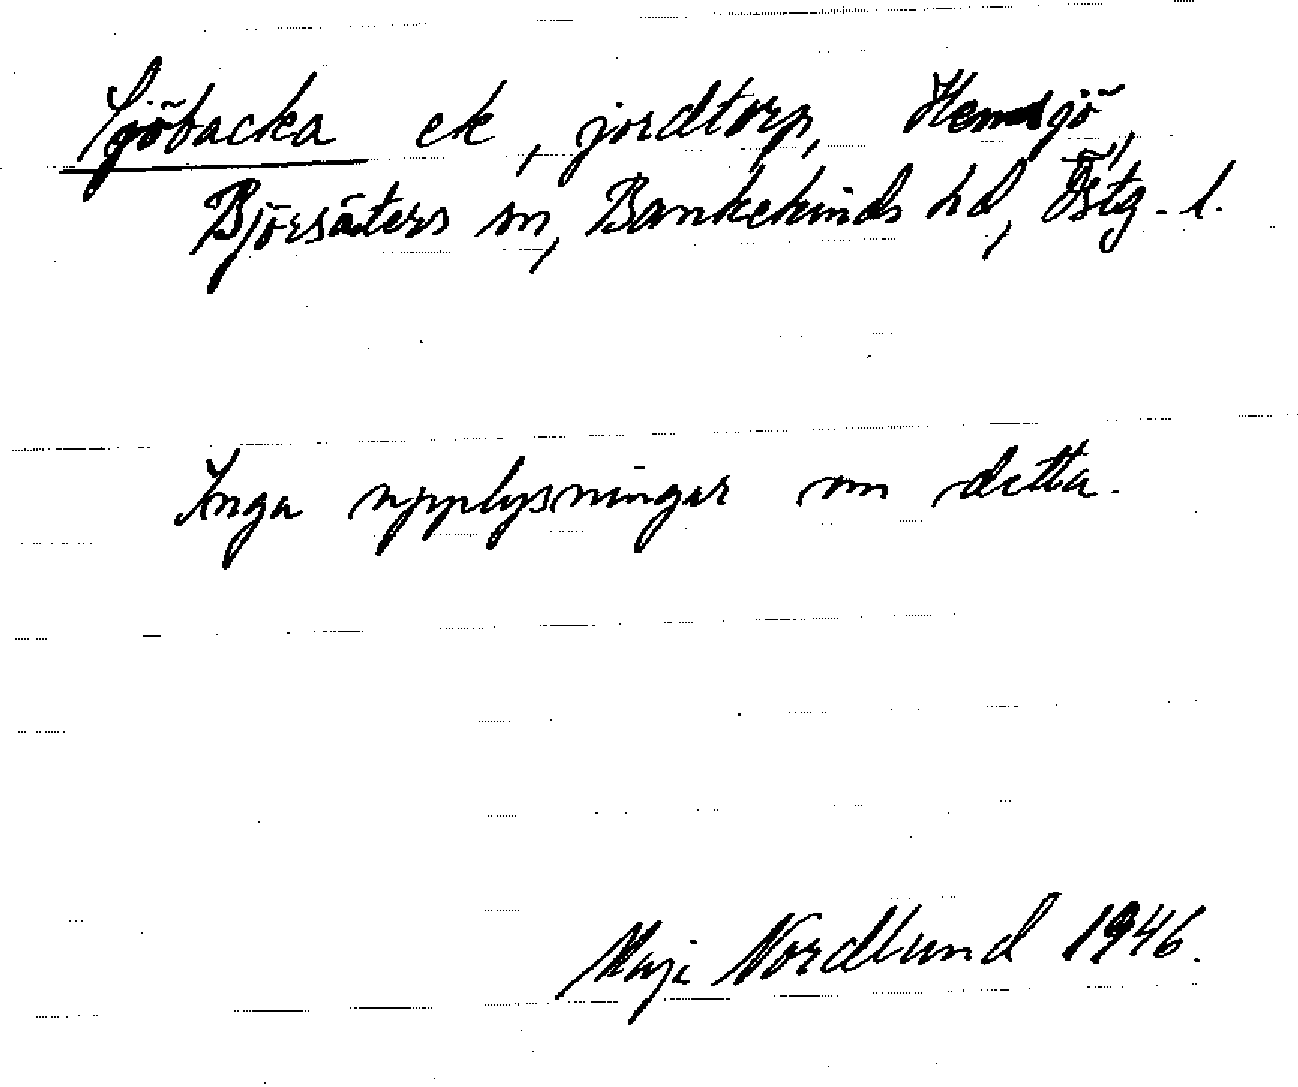 Sjöbacka ek, jordtorp, Hemsjö,
Björsäters sn, Bankekinds hd, Östg. l.
Inga upplysningar om detta.
Maji Nordlund 1946.